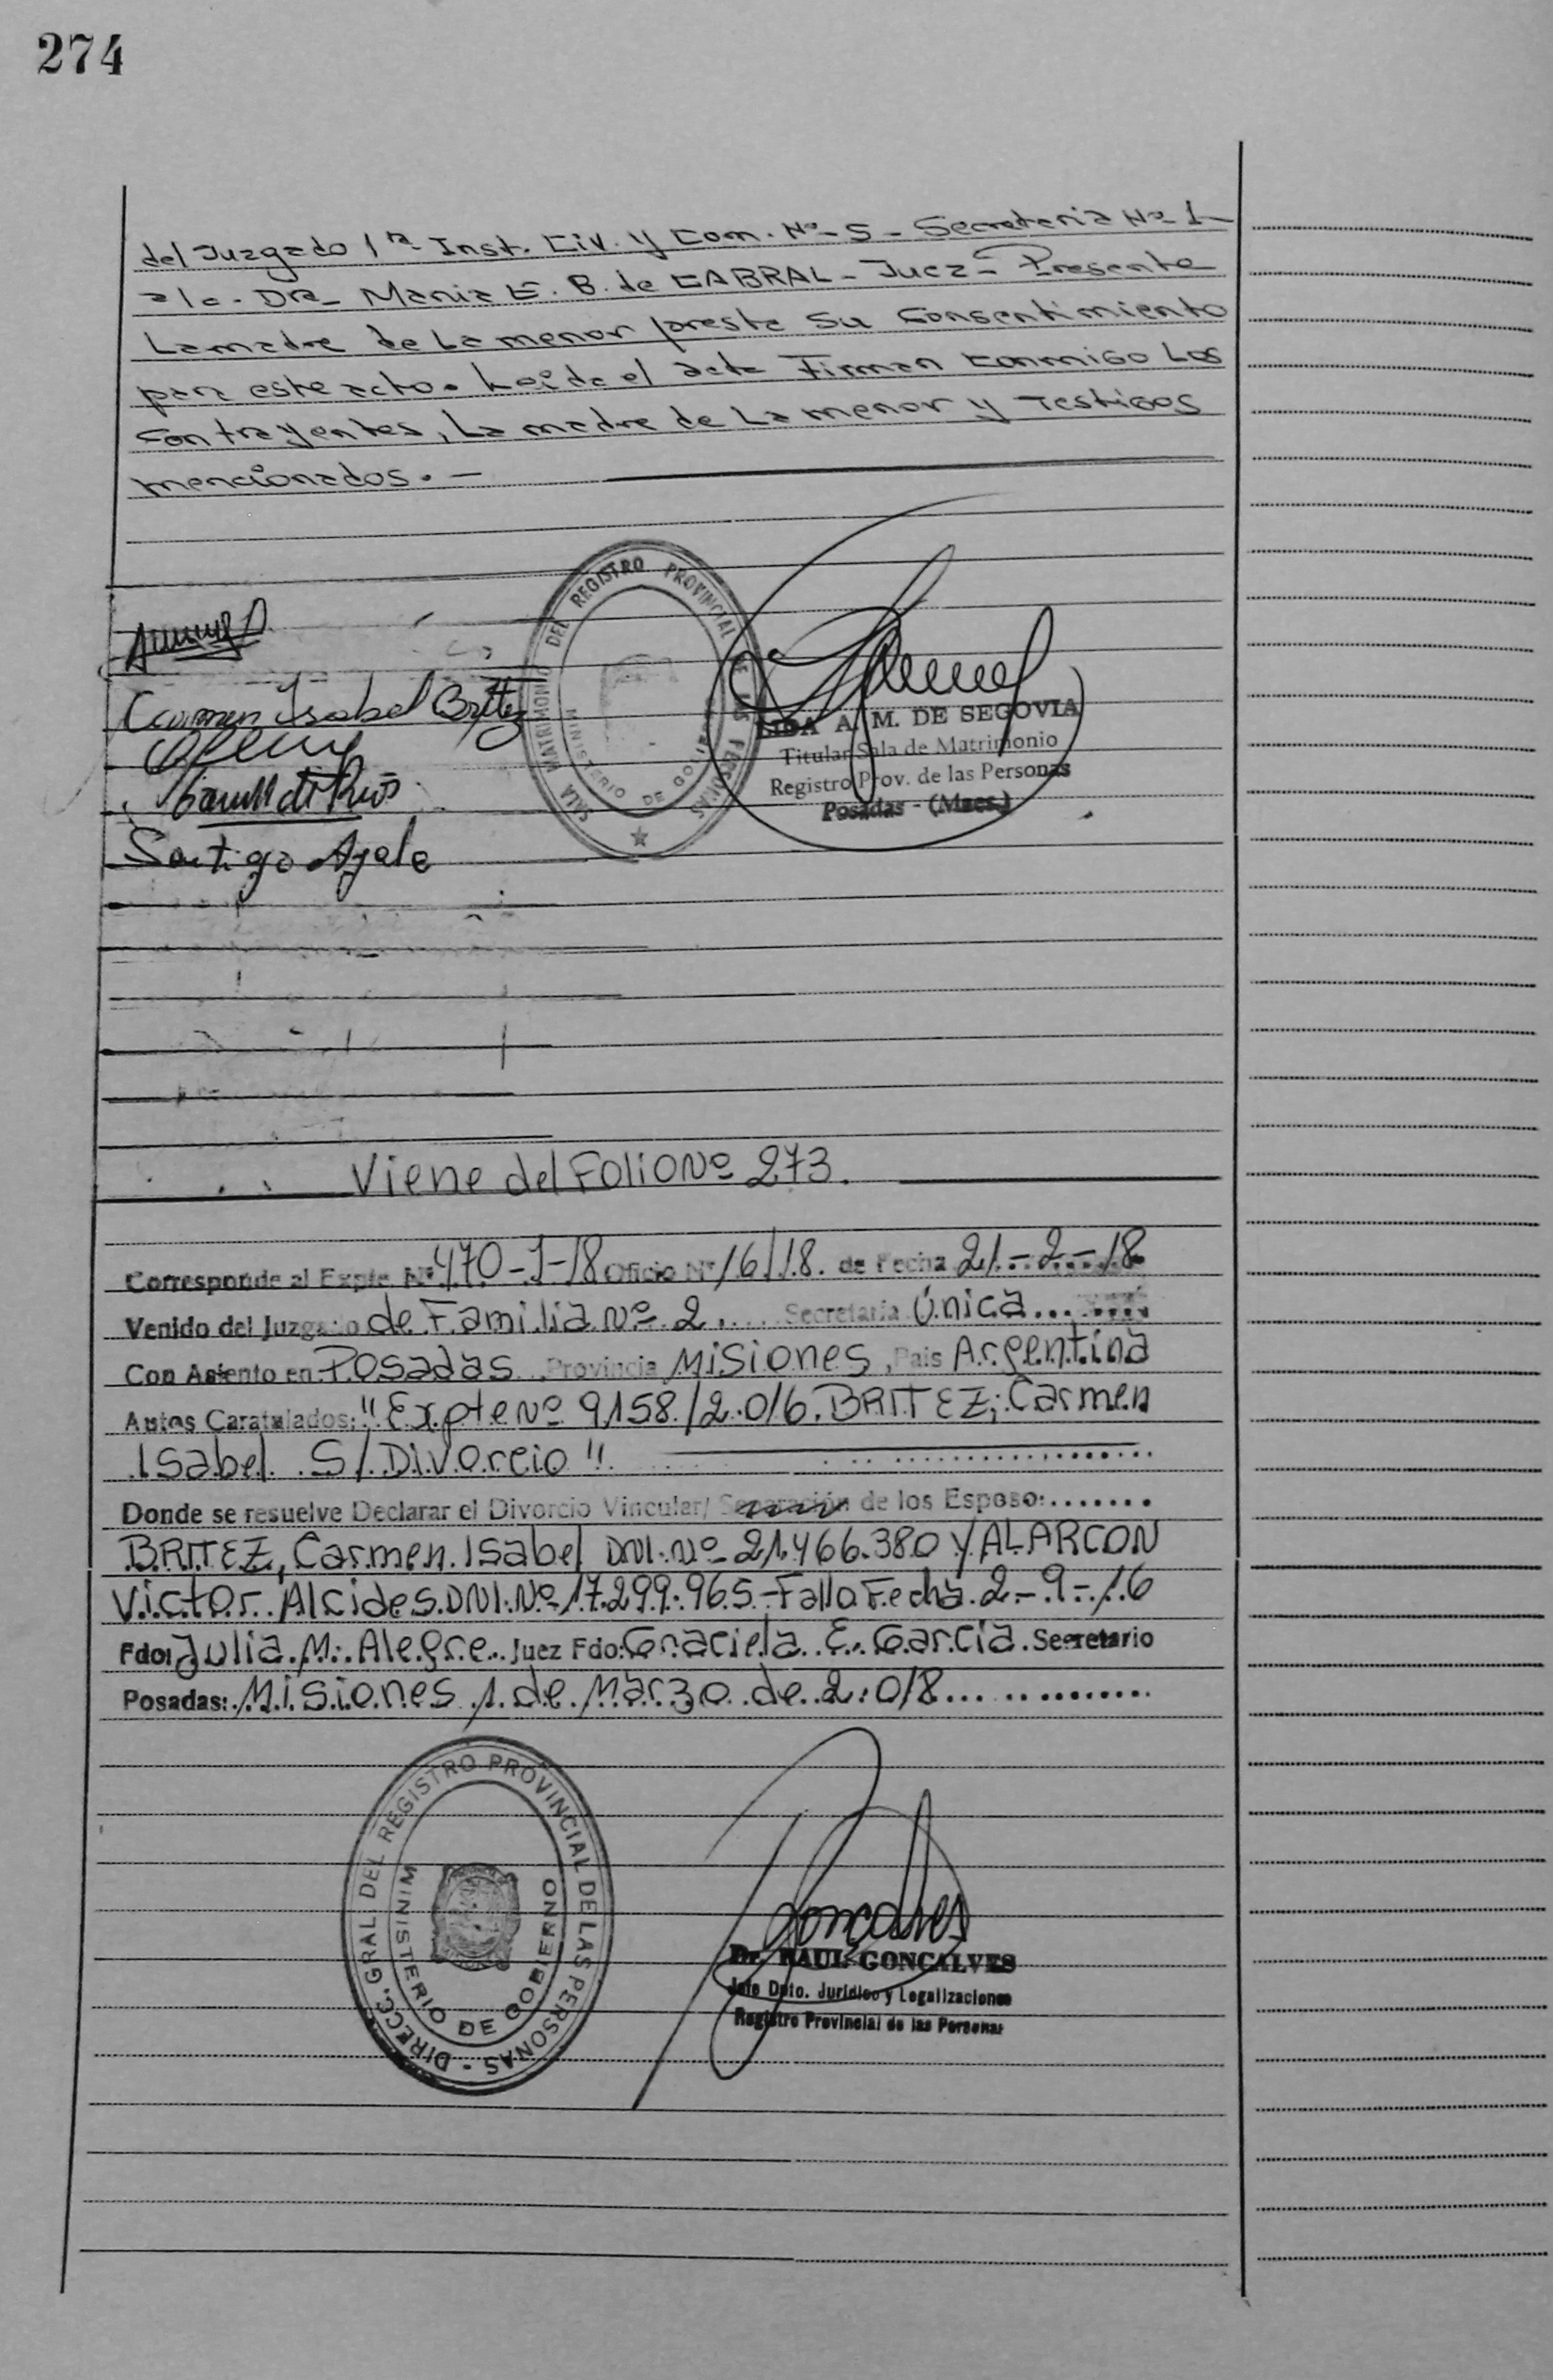 274
del Juzgado 1ra Inst. Civ. y Com. Nº 5 - Secretaria Nº 1 -
a/c. DRA - Maria E. B. de CABRAL - Juez - Presente
La madre de la menor presta su consentimiento
para este acto. Leída el acta Firman conmigo Los
contrayentes, La madre de La menor y Testigos
mencionados. -
Carmen Isabel Britez
Santigo Ayala
SALA MATRIMONIO DEL REGISTRO PROVINCIAL DE LAS PERSONAS
MINISTERIO DE GOBIERNO
A. M. DE SEGOVIA
Titular Sala de Matrimonio
Registro Prov. de las Personas
Posadas - (Mnes.)
Viene del Folio Nº 273.
Corresponde al Expte. Nº 470-J-18 Oficio Nº 16/18. de Fecha 21-2-18
Venido del Juzgado de Familia Nº 2. Secretaria Única
Con Asiento en Posadas, Provincia Misiones, Pais Argentina
Autos Caratulados: "Expte Nº 9158/2016. BRITEZ; Carmen
Isabel S/ Divorcio"
Donde se resuelve Declarar el Divorcio Vincular/ Separación de los Esposo:
BRITEZ, Carmen Isabel DNI. Nº 21.466.380 Y ALARCON
Victor Alcides DNI. Nº 17.299.965 - Fallo Fecha 2-9-16
Fdo: Julia M. Alegre Juez Fdo: Graciela E. Garcia Secretario
Posadas: Misiones 1 de Marzo de 2.018
DIRECC. GRAL. DEL REGISTRO PROVINCIAL DE LAS PERSONAS -
MINISTERIO DE GOBIERNO
Dr. RAUL GONCALVES
Jefe Dpto. Jurídico y Legalizaciones
Registro Provincial de las Personas